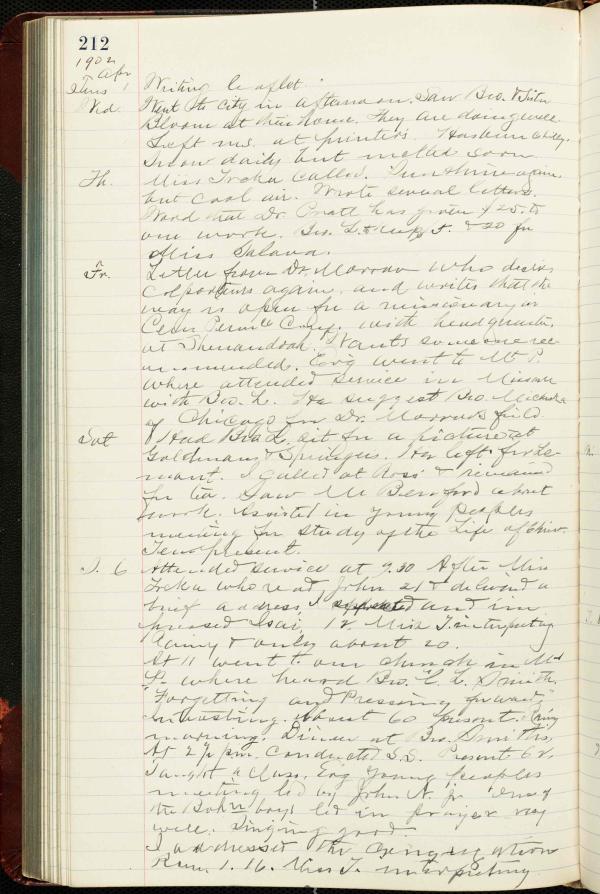 212
1902
Apr
Tues 1 Writing leaflet.
Wed. Went to city in afternoon. Saw Bro. & Sister
Bloom at their home. They are doing well.
Left ms. at printers.
Snow daily but melted soon
Th. Miss Treka called. Sunshine again,
but cool air. Wrote several letters.
Word that Dr. Pratt has given $25. to
our work. $20 for
Miss
Fr. Letter from Dr. Morrow who desires
Colporteurs again, and writes that the
way is open for a missionary in
Penn. with headquarters
at Shenandoah. Wants someone rec-
ommended. Ev'g went to Mt. P.
where attended service in Mission
with Bro. L. He suggest Bro.
of Chicago for Dr. Morrow's field
Sat Had Bro L. sit for a picture at
Goldman & Springers. He left for Le-
mont. I called at Ross' & remained
for tea. Saw Mr. about
work. Assisted in Young Peoples
meeting for study of the Life of Christ.
Ten present.
S. 6 Attended service at 9.30 After Miss
Treka who read John 21 & delivered a
brief address, I and im-
pressed Isai. 12. Miss T. interpreting
Rainy & only about 20.
At 11 went to our church in Mt
P. where heard Bro. C. L. Smith.
"Forgetting and Pressing forward,"
Interesting. About 60 present. Rainy
morning. Dinner at Bro. Smiths.
At 2½ p.m. Conducted S.S. Present 62.
Taught a class. Ev'g Young peoples
meeting led by John N. jr. One of
the boys led in prayer very
well. Singing good.
I addressed the congregation
Rom. 1. 16. Miss T. interpreting.